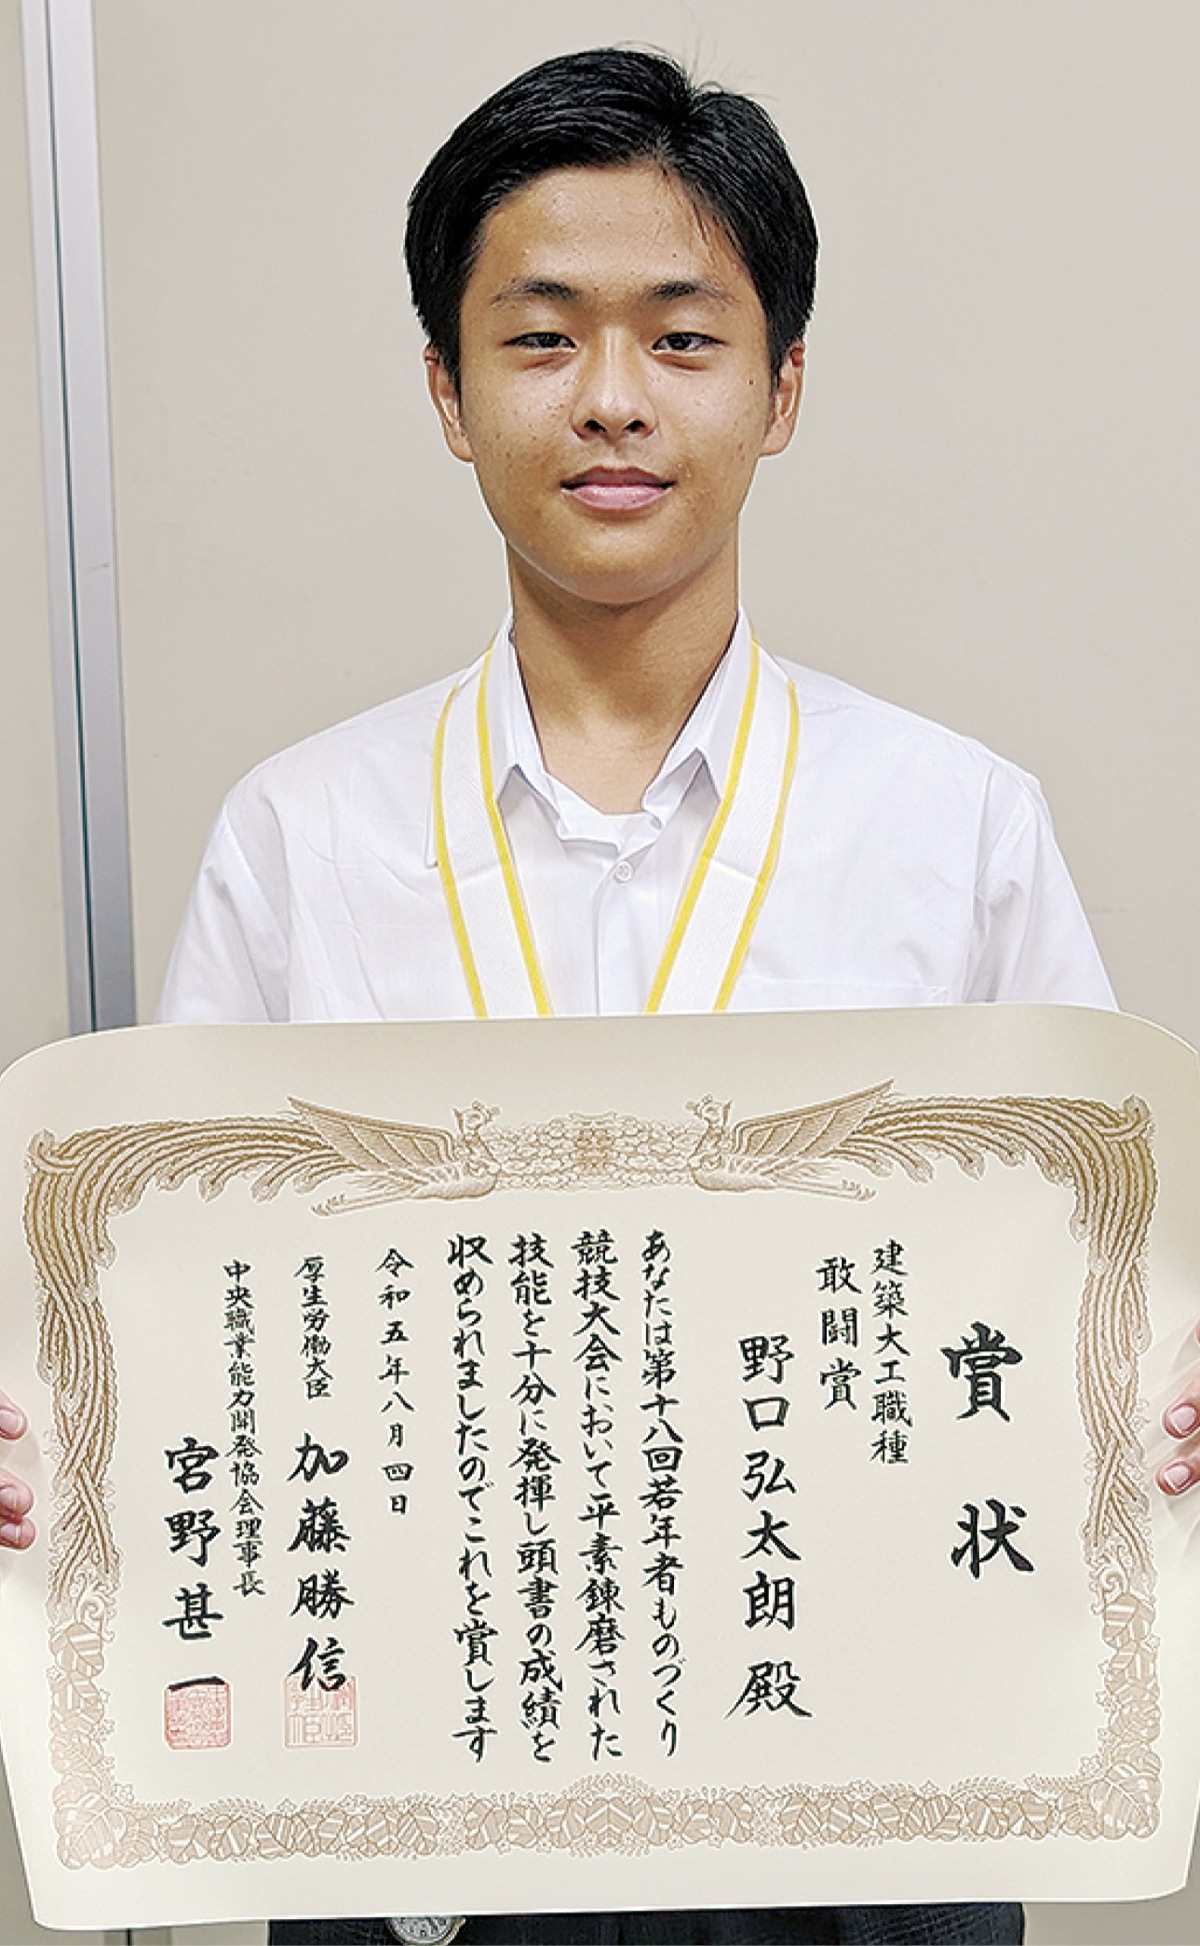 賞状
建築大工職種
敢闘賞
野口弘太朗殿
あなたは第十八回若年者ものづくり
競技大会において平素錬磨された
技能を十分に発揮し頭書の成績を
収められましたのでこれを賞します
令和五年八月四日
厚生労働大臣 加藤勝信
中央職業能力開発協会理事長
宮野甚一